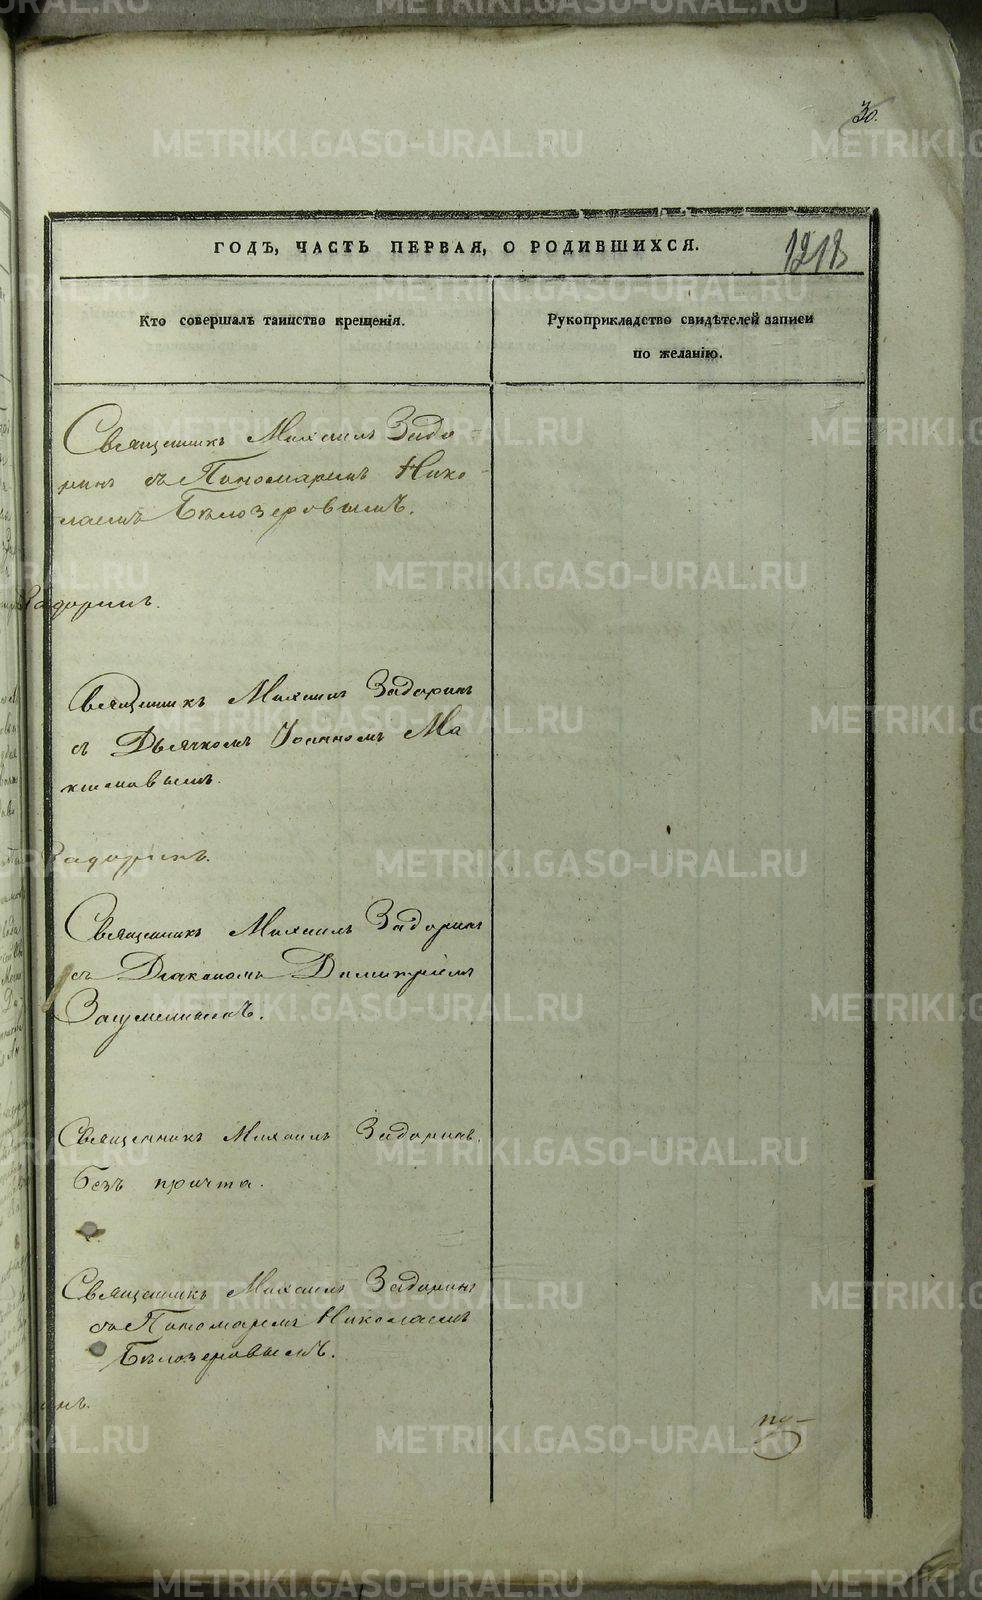 30.
ГОДЪ, ЧАСТЬ ПЕРВАЯ, О РОДИВШИХСЯ.
1218
Кто совершалъ таинство крещенія.
Рукоприкладство свидѣтелей записи
по желанію.
Священникъ Михаилъ Задо-
ринъ съ Пономаремъ Нико-
лаемъ Бѣлозеровымъ.
Задоринъ.
Священникъ Михаилъ Задоринъ
съ Дьячкомъ Іоанномъ Ма
Задоринъ.
Священникъ Михаилъ Задоринъ
съ Діакономъ Димитріемъ
Загуменнымъ.
Священникъ Михаилъ Задоринъ.
безъ причта.
Священникъ Михаилъ Задоринъ
съ Пономаремъ Николаемъ
Бѣлозеровымъ.
инъ.
METRIKI.GASO-URAL.RU